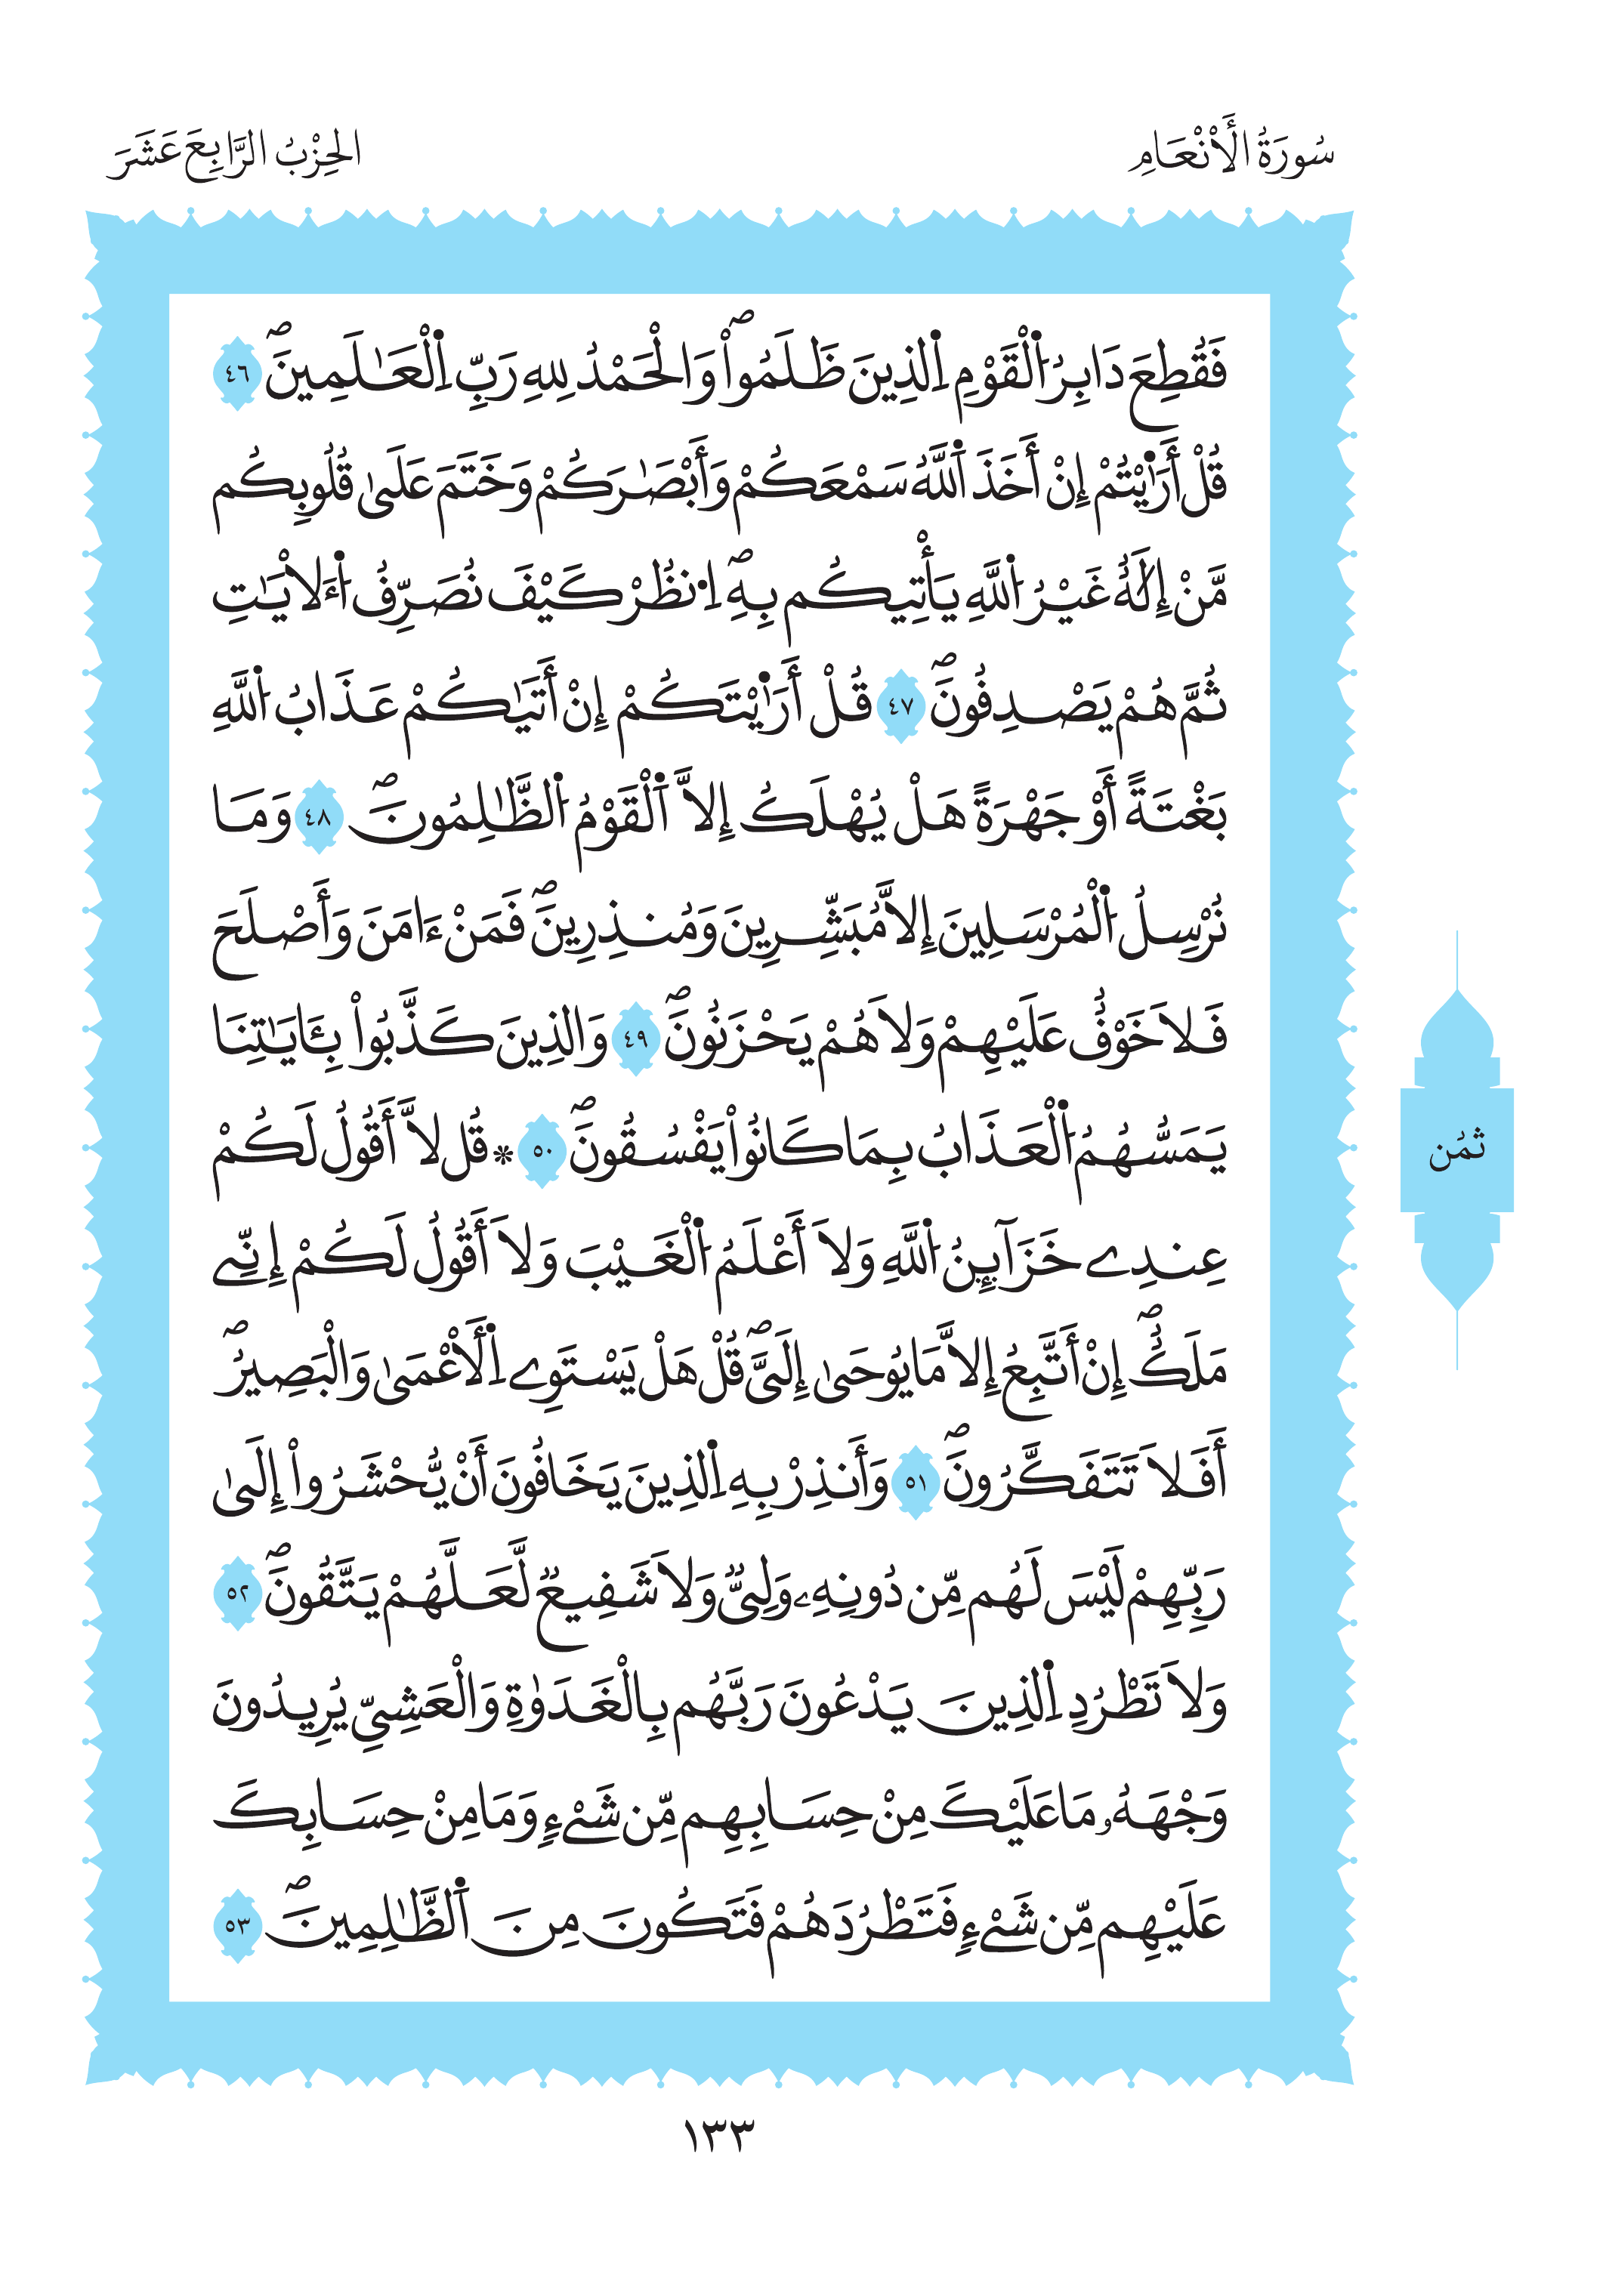 سُورَةُ الْأَنْعَامِ
الحِزْبُ الرَّابِعَ عَشَرَ
فَقُطِعَ دَابِرُ اُ۬لْقَوْمِ اِ۬لذِينَ ظَلَمُواْۖ وَالْحَمْدُ لِلهِ رَبِّ اِ۬لْعَٰلَمِينَۖ ٤٦
قُلْ أَرَٰ۬يْتُمْ إِنْ أَخَذَ اَ۬للَّهُ سَمْعَكُمْ وَأَبْصَٰرَكُمْ وَخَتَمَ عَلَىٰ قُلُوبِكُم
مَّنْ إِلَٰهٌ غَيْرُ اُ۬للَّهِ يَأْتِيكُم بِهِۖ اِ۟نظُرْ كَيْفَ نُصَرِّفُ اُ۬ءَلَايَٰتِ
ثُمَّ هُمْ يَصْدِفُونَۖ ٤٧ قُلْ أَرَٰ۬يْتَكُمْ إِنْ أَتَيٰكُمْ عَذَابُ اُ۬للَّهِ
بَغْتَةً أَوْ جَهْرَةً هَلْ يُهْلَكُ إِلاَّ اَ۬لْقَوْمُ اُ۬لظَّٰلِمُونَۖ ٤٨ وَمَا
نُرْسِلُ اُ۬لْمُرْسَلِينَ إِلاَّ مُبَشِّرِينَ وَمُنذِرِينَۖ فَمَنْ ءَامَنَ وَأَصْلَحَ
فَلاَ خَوْفٌ عَلَيْهِمْ وَلاَ هُمْ يَحْزَنُونَۖ ٤٩ وَالذِينَ كَذَّبُواْ بِـَٔايَٰتِنَا
يَمَسُّهُمُ اُ۬لْعَذَابُ بِمَا كَانُواْ يَفْسُقُونَۖ ٥٠ * قُل لاَّ أَقُولُ لَكُمْ
عِندِے خَزَآئِنُ اُ۬للَّهِ وَلاَ أَعْلَمُ اُ۬لْغَيْبَ وَلاَ أَقُولُ لَكُمْ إِنِّے
مَلَكٌۖ إِنْ أَتَّبِعُ إِلاَّ مَا يُوحَىٰ إِلَىَّۖ قُلْ هَلْ يَسْتَوِے اِ۬لَأَعْمَىٰ وَالْبَصِيرُۖ
أَفَلاَ تَتَفَكَّرُونَۖ ٥١ وَأَنذِرْ بِهِ اِ۬لذِينَ يَخَافُونَ أَنْ يُّحْشَرُواْ إِلَىٰ
رَبِّهِمْ لَيْسَ لَهُم مِّن دُونِهِۦ وَلِيٌّ وَلاَ شَفِيعٌ لَّعَلَّهُمْ يَتَّقُونَۖ ٥٢
وَلاَ تَطْرُدِ اِ۬لذِينَ يَدْعُونَ رَبَّهُم بِالْغَدَوٰةِ وَالْعَشِيِّ يُرِيدُونَ
وَجْهَهُۥ مَا عَلَيْكَ مِنْ حِسَابِهِم مِّن شَےْءٍ وَمَا مِنْ حِسَابِكَ
عَلَيْهِم مِّن شَےْءٍ فَتَطْرُدَهُمْ فَتَكُونَ مِنَ اَ۬لظَّٰلِمِينَۖ ٥٣
ثُمُن
١٣٣